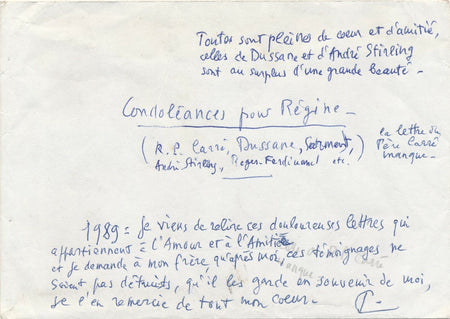 Toutes sont pleines de cœur et d'amitié,
celles de Dussane et d'André Stirling
sont au surplus d'une grande beauté -
Condoléances pour Régine -
(R.P. Carré, Dussane, Sarment,
André Stirling, Roger-Ferdinand etc.)
la lettre du
Père Carré
manque -
1989 = Je viens de relire ces douloureuses lettres qui
appartiennent à l'Amour et à l'Amitié
et je demande à mon frère qu'après moi, ces témoignages ne
soient pas détruits, qu'il les garde en souvenir de moi,
je l'en remercie de tout mon cœur.